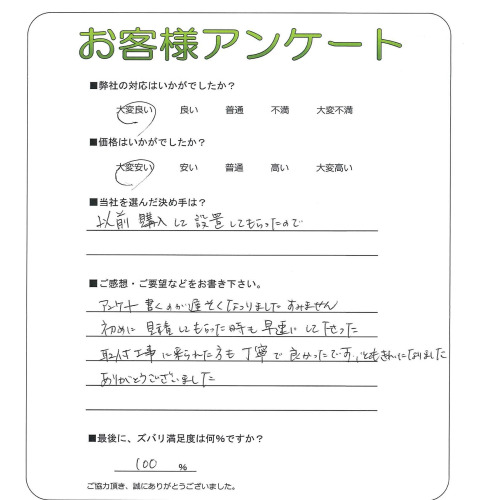 お客様アンケート
■弊社の対応はいかがでしたか？
大変良い 良い 普通 不満 大変不満
■価格はいかがでしたか？
大変安い 安い 普通 高い 大変高い
■当社を選んだ決め手は？
以前購入して設置してもらったので
■ご感想・ご要望などをお書き下さい。
アンケート書くのが遅くなりましたすみません
初めに見積してもらった時も早速にして下さった
取付工事に来られた方も丁寧で良かったです
ありがとうございました
■最後に、ズバリ満足度は何％ですか？
100 ％
ご協力頂き、誠にありがとうございました。